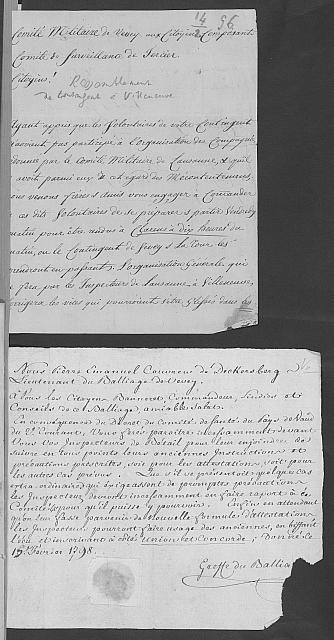 14 96
2
Comité Militaire de Vevey aux Citoyens Composants
Comité de Surveillance de
Citoyens!
Rassemblement
de Contingent à Villeneuve
Ayant appris que les Volontaires de votre Contingent
n'avoient pas participé à l'organisation des Compagnies
donnée par le Comité Militaire de Lausanne, & qu'il
avoit parmi eux à cet égard des Mecontentemens,
nous venons frères & amis vous engager à Commander
ces dits Volontaires de se preparer à partir Vendredy
matin pour être rendus à Clarens à dix heures du
matin, ou le Contingent de Vevey & la Tour les
prendront en passant. L'organisation Générale qui
se fera par les Inspecteurs de Lausanne à Villeneuve
corrigera les vices qui pourroient s'être glissés dans les
Nous Pierre Emanuel Couvreu de Deckersberg
Lieutenant du Balliage de Vevey.
A Vous les Citoyens Banneret, Commandeur, Sindics et
Conseils de ce Balliage, amiable Salut.
En conséquence du Décret du Comité de Santé du Pays de Vaud
du 2e Courant, Vous ferés paroitre incessamment devant
Vous vos Inspecteurs de Bétail pour leur enjoindre de
suivre en tous points leurs anciennes Instructions et
précautions prescrites, soit pour les attestations soit pour
les autres cas prévus. Que si il se présentoit quelque cas
extraordinaire qui exigeassent de promptes précautions
les Inspecteurs devront incessamment en faire raport au
Comité pour qu'il puisse y pourvoir. Enfin en attendant
qu'on leur fasse parvenir de nouvelle formules d'attestations
les Inspecteurs pourront faire usage des anciennes, en biffant
l'ours et inserant à côté Union et Concorde; Donné ce
15 Fevrier 1798.
Greffe du Balliage